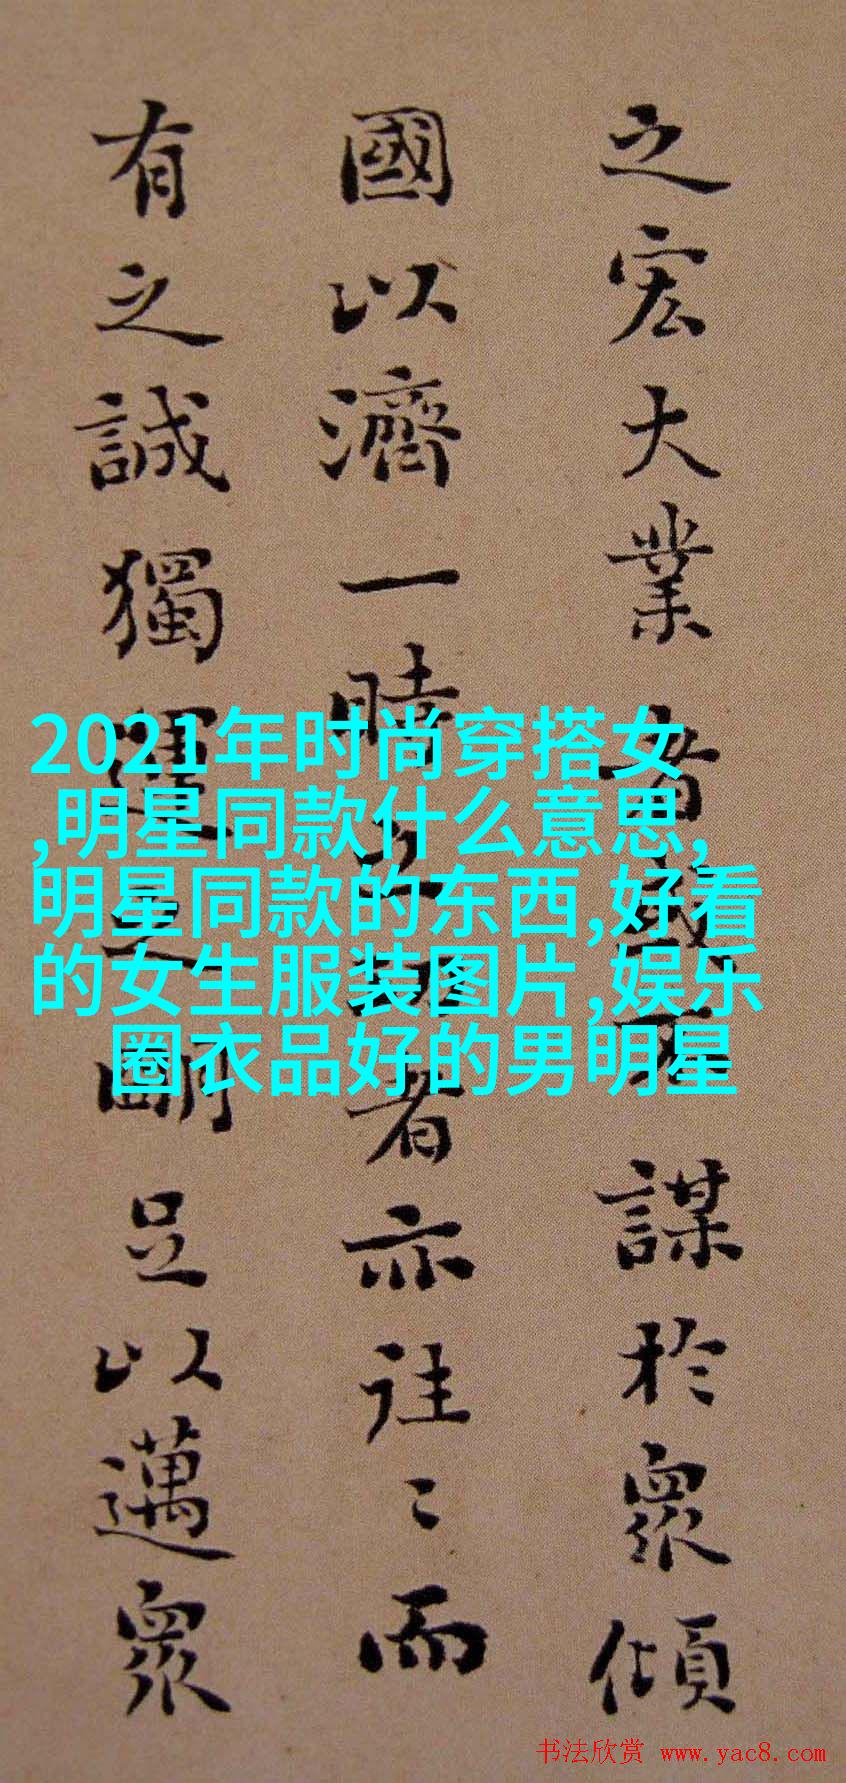 之宏大業者或不謀於衆傾
國以濟一時之功者亦往々而
有之誠獨運之明足以邁衆
2021年时尚穿搭女
,明星同款什么意思,
明星同款的东西,好看
的女生服装图片,娱乐
圈衣品好的男明星
书法欣赏 www.yac8.com